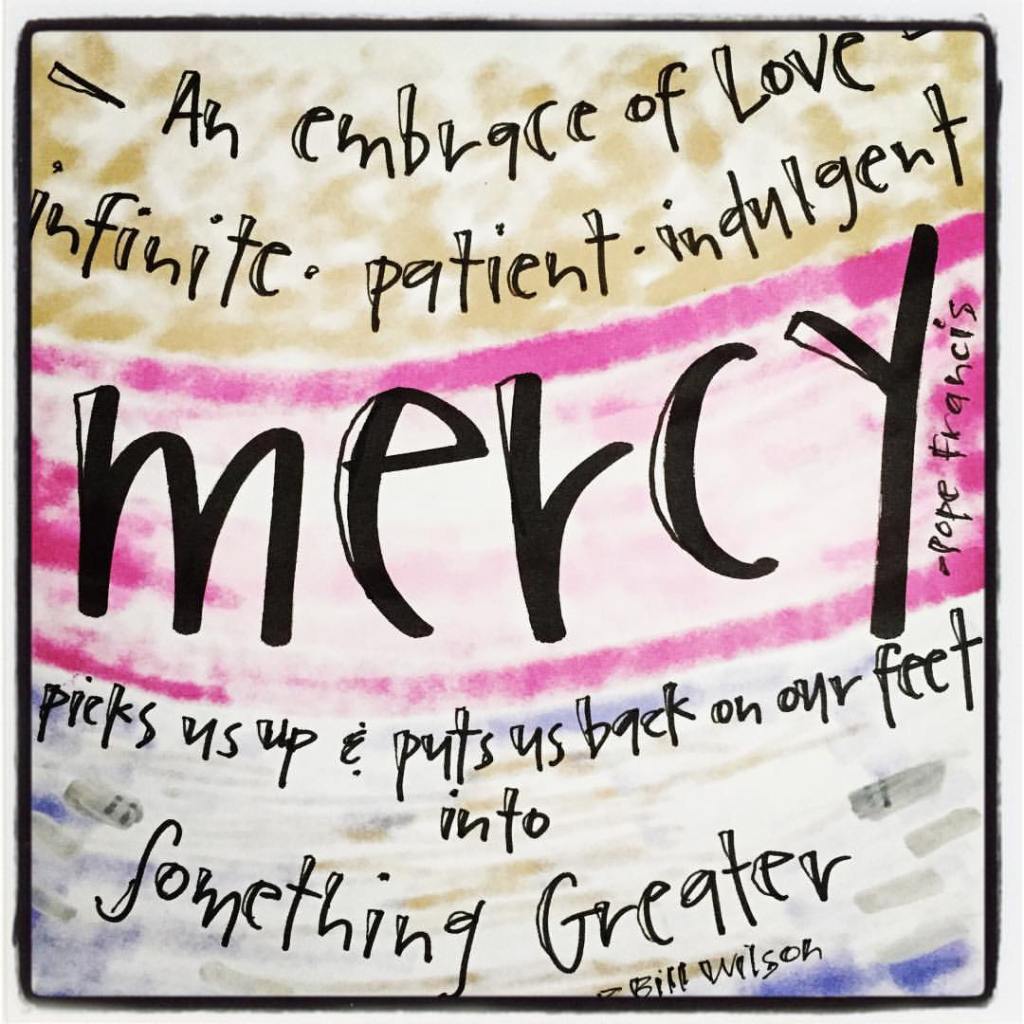 - An embrace of Love -
infinite. patient. indulgent
mercy
-Pope Francis
picks us up & puts us back on our feet
into
Something Greater
- Bill Wilson